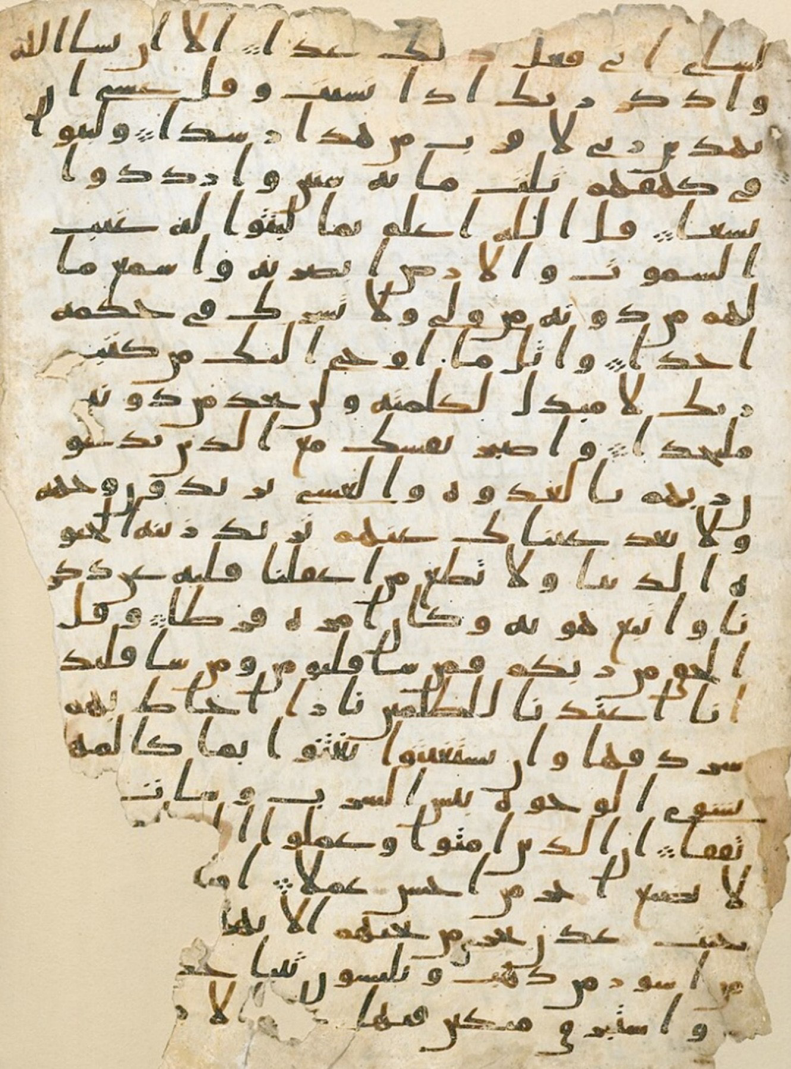 لشاى انى فعل ذلك غدا الا ان يشا الله
واذكر ربك اذا نسيت وقل عسى ان
يهدين ربى لاقرب من هذا رشدا ولبثوا
فى كهفهم ثلث مايه سنين وازددوا
تسعا قل الله اعلم بما لبثوا له غيب
السموت والارض ابصر به واسمع ما
لهم من دونه من ولى ولا تشرك فى حكمه
احدا واتل ما اوحى اليك من كتب
ربك لا مبدل لكلمته ولن تجد من دونه
ملتحدا واصبر نفسك مع الذين يدعو
ن ربهم بالغدوه والعشى يريدون وجهه
ولا تعد عيناك عنهم تريد زينه الحيو
ه الدنيا ولا تطع من اغفلنا قلبه عن ذكر
نا واتبع هويه وكان امره فرطا وقل
الحق من ربكم فمن شا فليومن ومن شا فليك
انا اعتدنا للظلمين نارا احاط بهم
سردقها وان يستغيثوا يغثوا بما كالمه
يشوى الوجوه بيس الشرب وسات
تفقا ان الذين امنوا وعملوا ا
لا نضيع اجر من احسن عملا او
جنت عدن تجرى من تحتهم الانها
من اسور من ذهب ويلبسون ثيابا خ
واستبرق متكين فيها الار